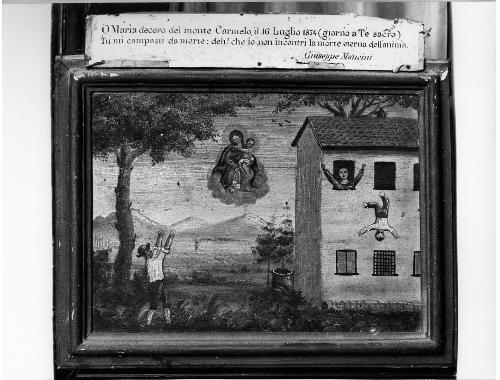 O Maria decoro del monte Carmelo, il 16 Luglio 1874 (giorno a Te sacro)
Tu mi campasti da morte: deh! che io non incontri la morte eterna dell'anima.
Giuseppe Mancini